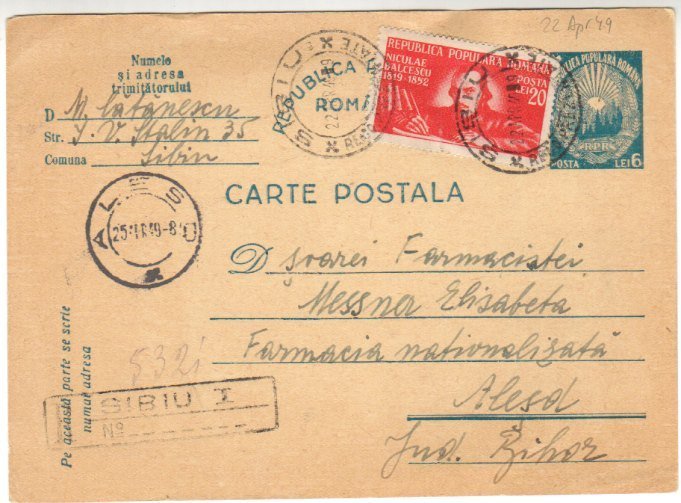 22 Apr 49
Numele
și adresa
trimițătorului
D M. Catanescu
Str. I. V. Stalin 35
Comuna Sibiu
REPUBLICA
ROMÂ
REPUBLICA POPULARA ROMANA
NICULAE
BALCESCU
1819-1852
POSTA
LEI 20
SIBIU
SIBIU
POPULARA ROMANA
RPR
POSTA LEI 6
CARTE POSTALA
ALESD
25 49-8
D șoarei Farmacistei
Messner Elisabeta
Farmacia nationalizată
Alesd
Jud. Bihor
532i
SIBIU I
No
Pe această parte se scrie
numai adresa